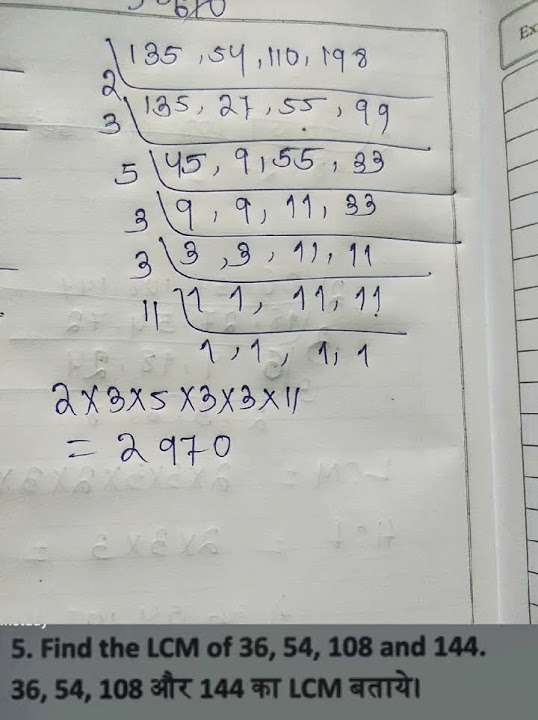 670
Ex
2 135, 54, 110, 198
3 135, 27, 55, 99
5 45, 9, 55, 33
3 9, 9, 11, 33
3 3, 3, 11, 11
11 1 1, 11, 11
1, 1, 1, 1
2×3×5×3×3×11
= 2970
5. Find the LCM of 36, 54, 108 and 144.
36, 54, 108 और 144 का LCM बताये।